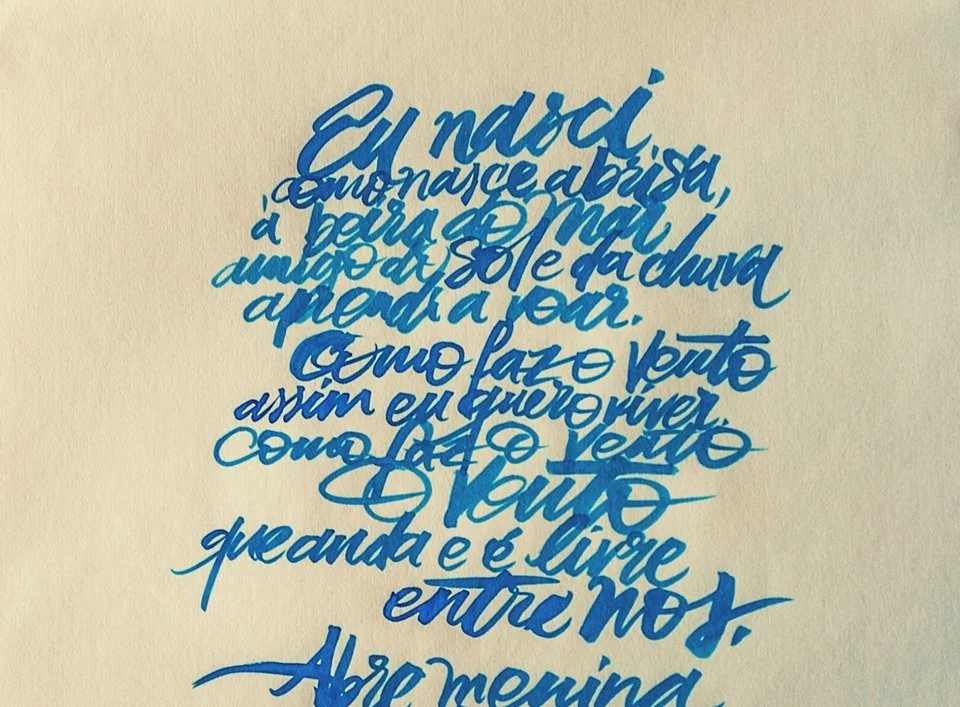 Eu nasci
como nasce a brisa,
à beira do mar
amigo do sol e da chuva
aprendi a voar.
Como faz o vento
assim eu quero viver.
como faz o vento
O vento
que anda e é livre
entre nos.
Abre menina